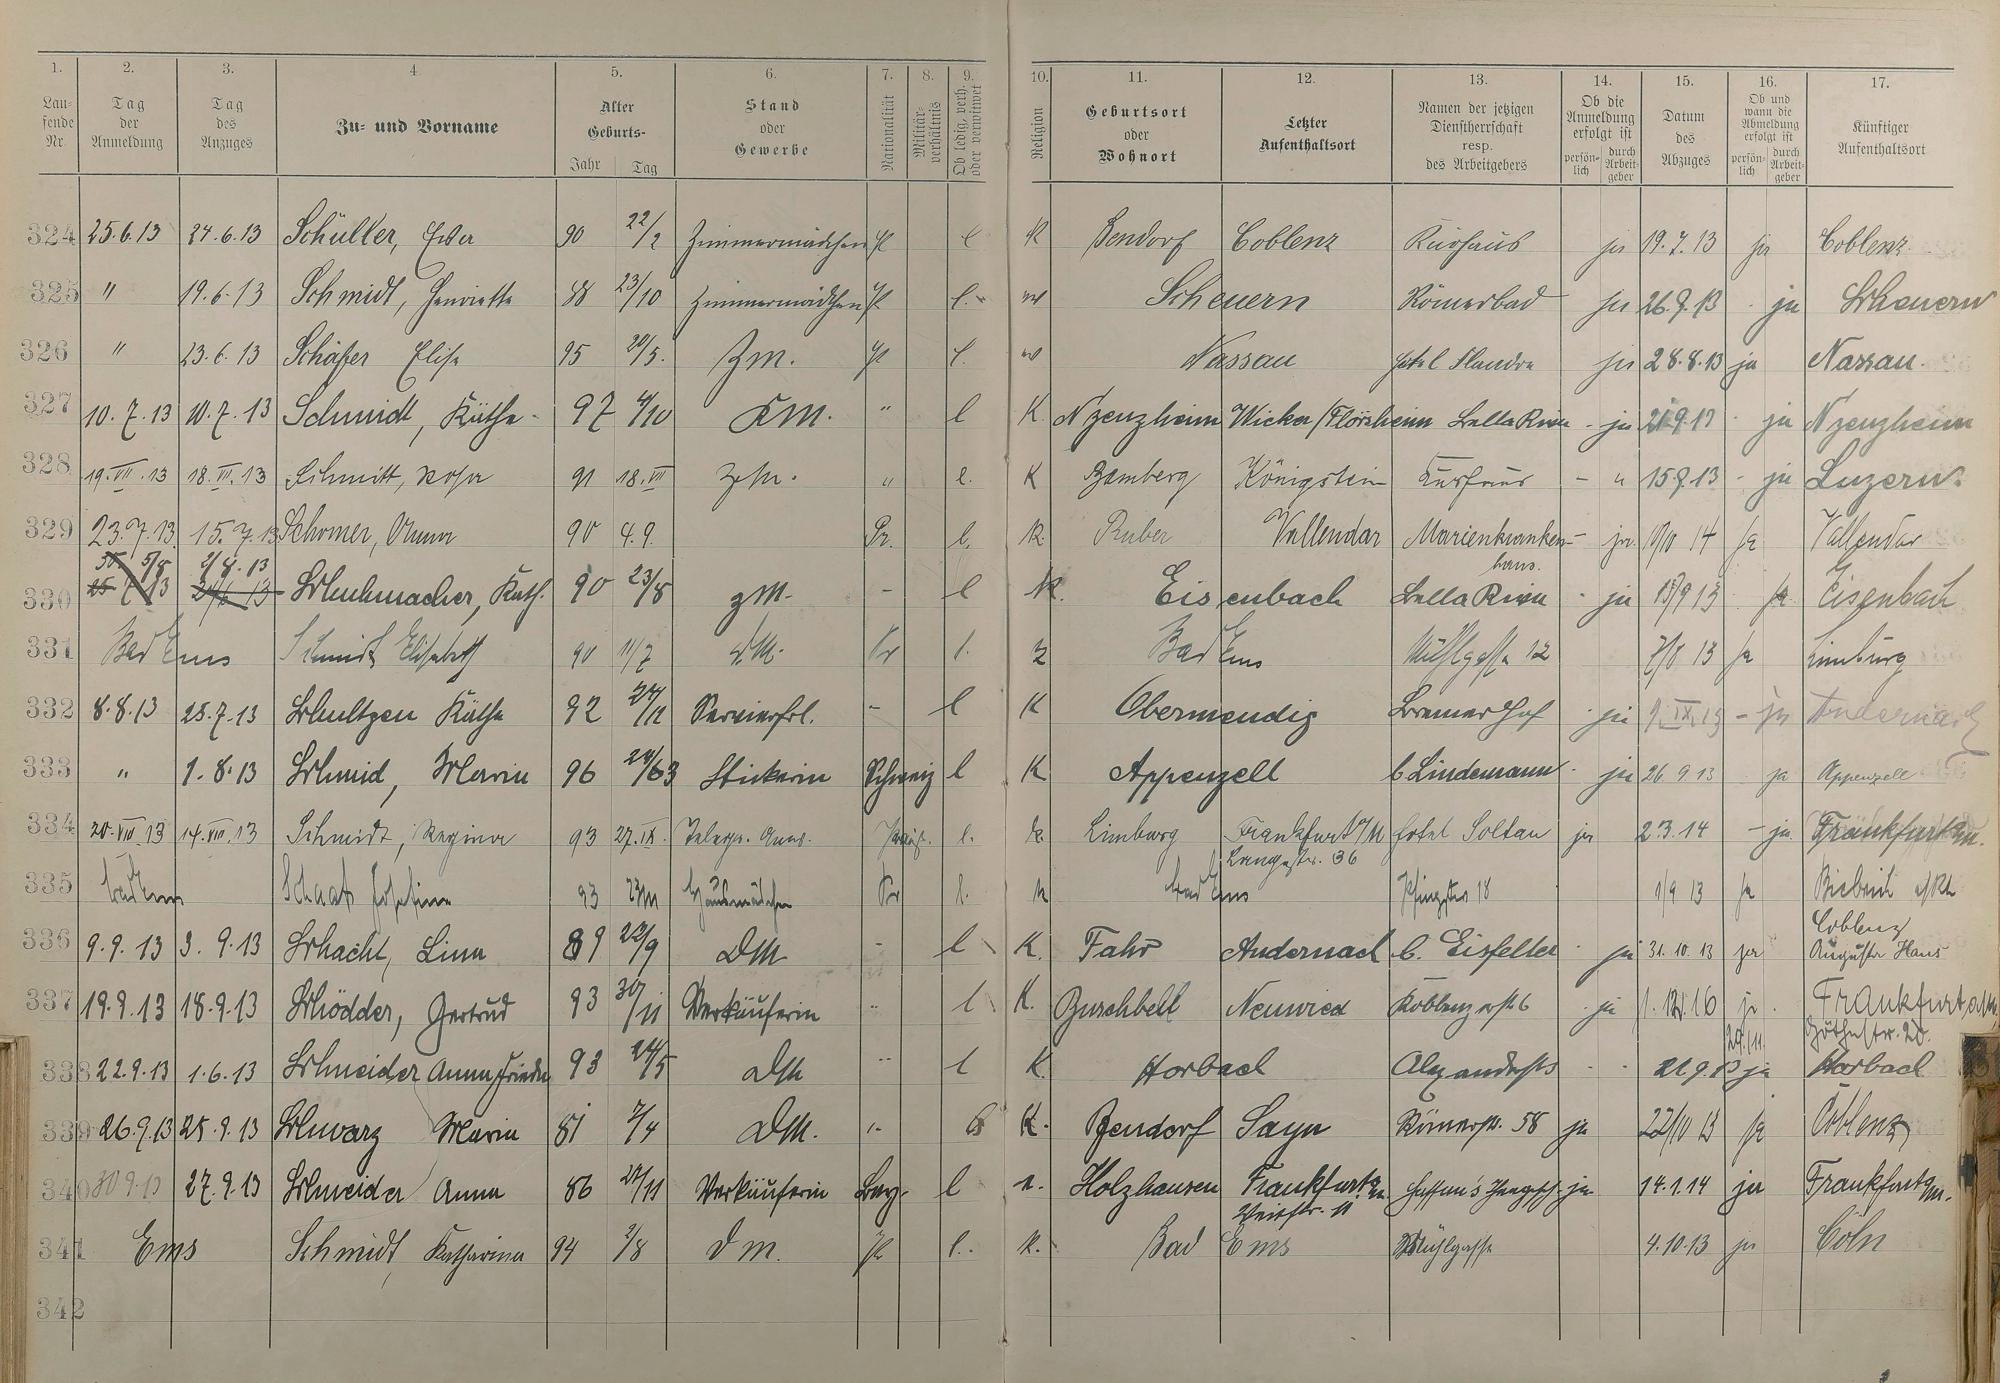 1. 2. 3. 4. 5. 6. 7. 8. 9. 10. 11. 12. 13. 14. 15. 16. 17.
Lau-fende Nr. Tag der Anmeldung Tag des Anzuges Zu- und Vorname Alter Geburts- Jahr Tag Stand oder Gewerbe Nationalität Militär-verhältnis Ob ledig, verh. oder verwitwet Religion Geburtsort oder Wohnort Letzter Aufenthaltsort Namen der jetzigen Dienstherrschaft resp. des Arbeitgebers Ob die Anmeldung erfolgt ist persön-lich durch Arbeit-geber Datum des Abzuges Ob und wann die Abmeldung erfolgt ist persön-lich durch Arbeit-geber Künftiger Aufenthaltsort
324 25.6.13 24.6.13 Schüller, Eva 90 22/2 Zimmermädchen l K Bendorf Coblenz Kurhaus ja 19.7.13 ja Coblenz
325 " 19.6.13 Schmidt, Henriette 88 23/10 Zimmermädchen l. Scheuern Römerbad ja 26.9.13 ja Scheuern
326 " 23.6.13 Schäfer Elise 95 20/5. Zm. l. Nassau Hotel Flandre ja 28.8.13 ja Nassau
327 10.7.13 10.7.13 Schmidt, Käthe 97 4/10 " l K. Wicker/Flörsheim Bella Riva ja ja
328 19.VII.13 18.VII.13 Schmitt, Rosa 91 18.VII " l. K Bamberg Königstein Kurhaus - " 15.9.13 - ja Luzern
329 23.7.13 15.7.13 Schomer, Anna 90 4.9. Pr. l. K. Vallendar Marienkranken-haus. ja 14 ja Vallendar
330 5/8 2/8.13 Schuhmacher, Kath. 90 23/8 ZM. - l K. Eisenbach Bella Riva - ja 13/9 13 ja Eisenbach
331 Bad Ems Schmidt Elisabeth 90 11/7 DM. Pr l. Bad Ems Mühlgasse 12 7/8 13 ja Limburg
332 8.8.13 25.7.13 Schultzen Käthe 92 Servierfrl. - l K Obermendig Bremer Hof - ja 9.IX.13 - ja Andernach
333 " 1.8.13 Schmid, Maria 96 Stickerin Schweiz l K Appenzell b Lindemann - ja 26 9 13 ja Appenzell
334 20.VIII.13 14.VIII.13 Schmidt, Regina 93 27.IX. l. k. Limburg Frankfurt a/M Hotel Soltau ja 2.3.14 - ja Frankfurt a/M.
Langestr. 36
335 Bad Ems Schaab Josefine 93 Hausmädchen Pr l. k Bad Ems 18 1/9 13 ja Biebrich a/Rh
336 9.9.13 3.9.13 Schacht, Lina 89 22/9 DM - l K. Fahr Andernach b. Eisfeller - ja 31.10.13 ja Coblenz Augusta Haus
337 19.9.13 18.9.13 Schödder, Gertrud 93 30/11 Verkäuferin " l K. Neuwied Koblenzerstr 6 - ja Frankfurt a/M. Göthestr. 20.
338 22.9.13 1.6.13 Schneider Anna Frieda 93 24/5 DM " l K. Horbach ja Horbach
339 26.9.13 25.9.13 Schwarz Maria 81 7/4 DM. " K. Bendorf Sayn Römerstr. 58 ja 22/10 13 ja Coblenz
340 30 9.13 27.9.13 Schneider Anna 86 Verkäuferin l Holzhausen Frankfurt a/M. ja 14.1.14 ja Frankfurt a/M.
341 Ems Schmidt, Katharina 94 2/8 DM. l. K. Bad Ems Mühlgasse 4.10.13 ja Cöln
342